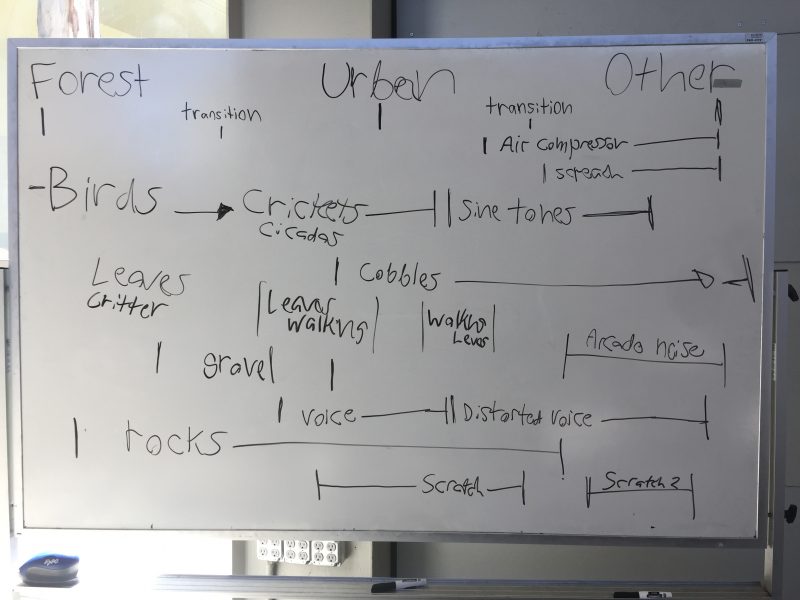 Forest Urban Other
transition transition
Air compressor
screach
-Birds Crickets Sine tones
Cicadas
Leaves Cobbles
Critter
Leaves Walking
walking Leves
Arcade noise
gravel
voice Distorted voice
rocks
Scratch Scratch 2
EXPO